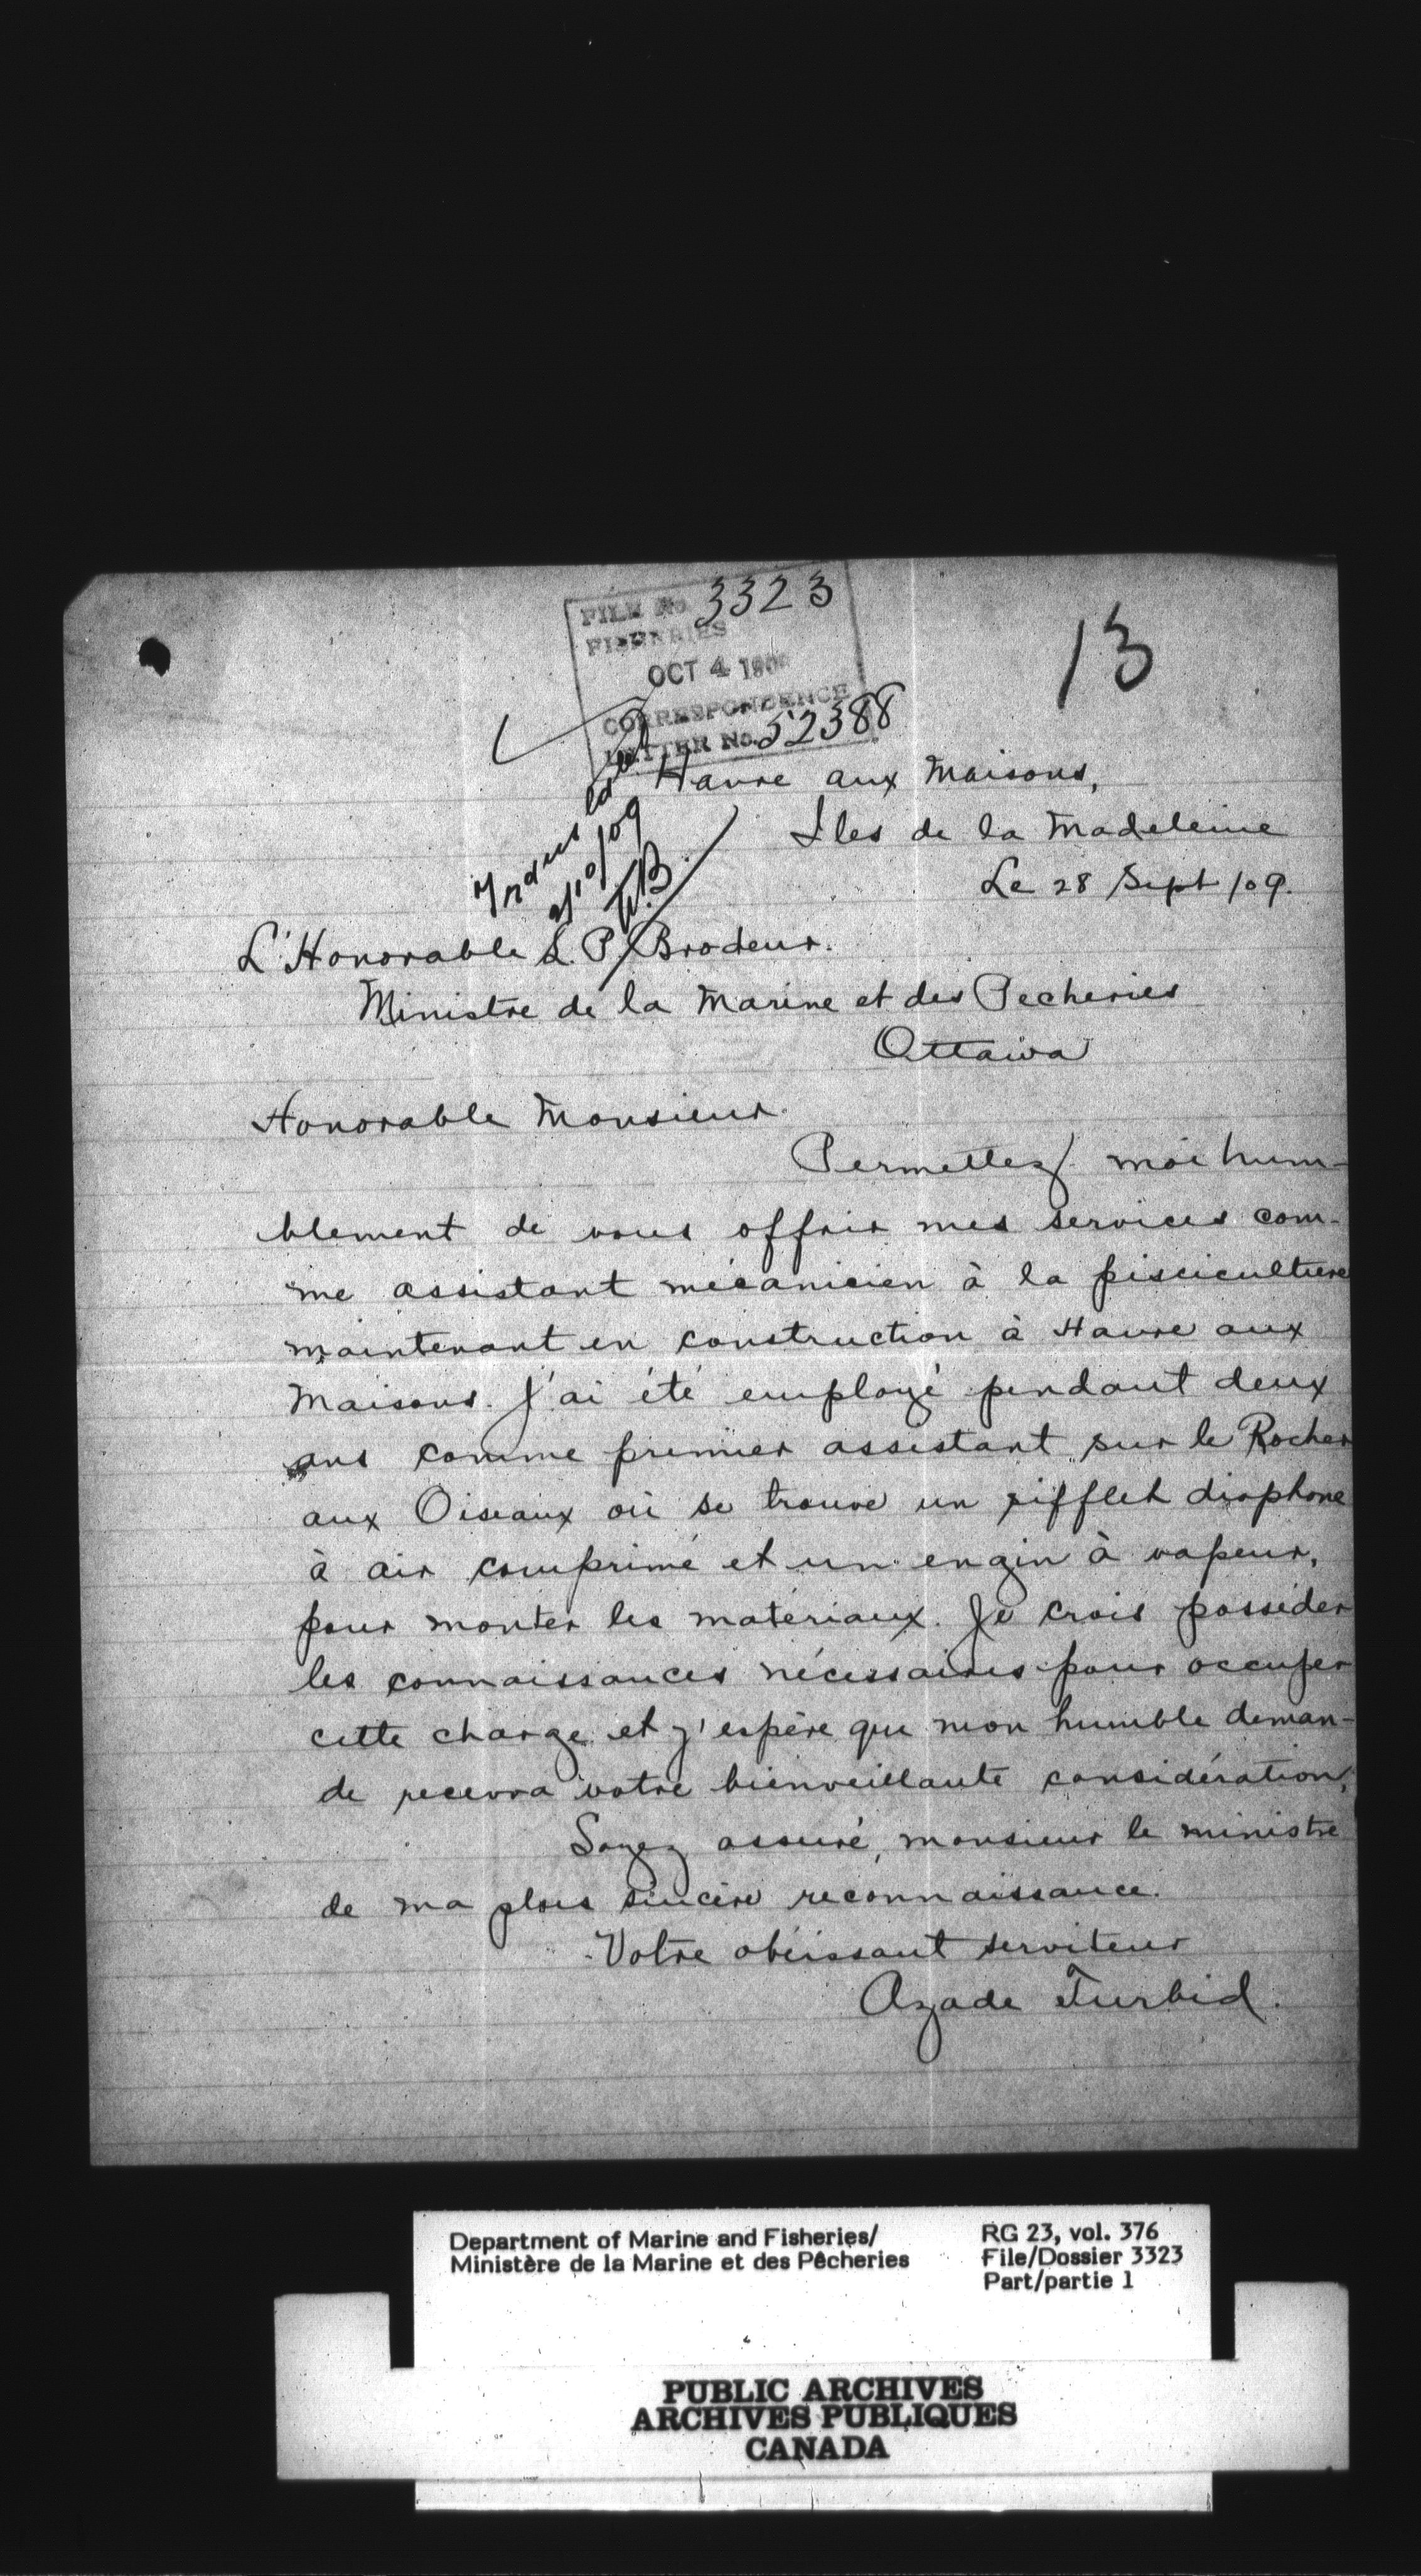 FILE No. 3323
FISHERIES
OCT 4 1909
CORRESPONDENCE
LETTER No. 52388
13
Havre aux Maisons,
Iles de la Madeleine
Le 28 Sept /09.
/10/09
L'Honorable L. P. Brodeur.
Ministre de la Marine et des Pecheries
Ottawa
Honorable Monsieur.
Permettez moi hum-
blement de vous offrir mes services com-
me assistant mécanicien à la pisciculture
maintenant en construction à Havre aux
Maisons. J'ai été employé pendant deux
ans comme premier assistant sur le Rocher
aux Oiseaux où se trouve un sifflet diaphone
à air comprimé et un engin à vapeur,
pour monter les matériaux. Je crois posséder
les connaissances nécessaires pour occuper
cette charge et j'espère que mon humble deman-
de recevra votre bienveillante considération,
Soyez assuré, monsieur le ministre
de ma plus sincère reconnaissance.
Votre obéissant serviteur
Azade Turbid.
Department of Marine and Fisheries/
Ministère de la Marine et des Pêcheries
RG 23, vol. 376
File/Dossier 3323
Part/partie 1
PUBLIC ARCHIVES
ARCHIVES PUBLIQUES
CANADA